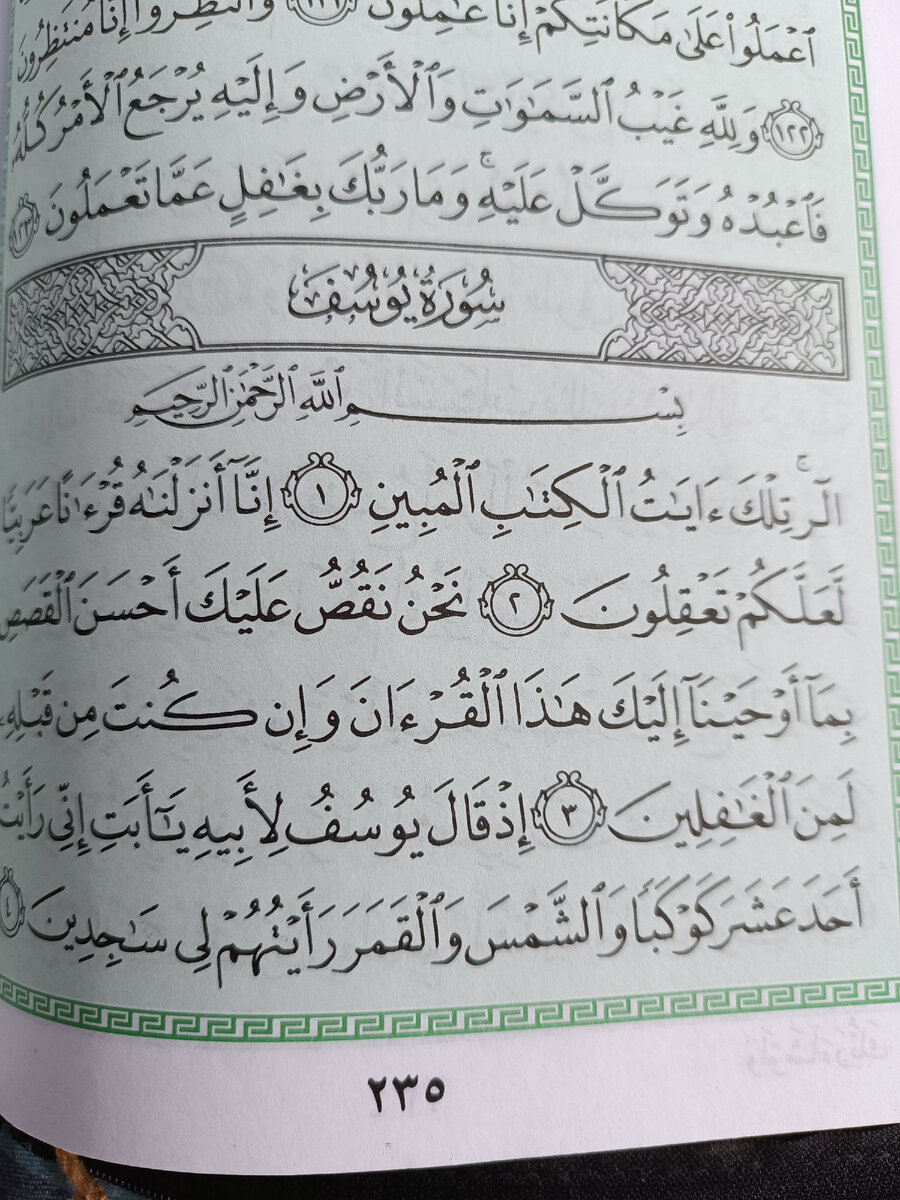 ٱعۡمَلُواْ عَلَىٰ مَكَانَتِكُمۡ إِنَّا عَٰمِلُونَ ١٢١ وَٱنتَظِرُوٓاْ إِنَّا مُنتَظِرُونَ
١٢٢ وَلِلَّهِ غَيۡبُ ٱلسَّمَٰوَٰتِ وَٱلۡأَرۡضِ وَإِلَيۡهِ يُرۡجَعُ ٱلۡأَمۡرُ كُلُّهُۥ
فَٱعۡبُدۡهُ وَتَوَكَّلۡ عَلَيۡهِۚ وَمَا رَبُّكَ بِغَٰفِلٍ عَمَّا تَعۡمَلُونَ ١٢٣
سُورَةُ يُوسُفَ
بِسۡمِ ٱللَّهِ ٱلرَّحۡمَٰنِ ٱلرَّحِيمِ
الٓرۚ تِلۡكَ ءَايَٰتُ ٱلۡكِتَٰبِ ٱلۡمُبِينِ ١ إِنَّآ أَنزَلۡنَٰهُ قُرۡءَٰنًا عَرَبِيّٗا
لَّعَلَّكُمۡ تَعۡقِلُونَ ٢ نَحۡنُ نَقُصُّ عَلَيۡكَ أَحۡسَنَ ٱلۡقَصَصِ
بِمَآ أَوۡحَيۡنَآ إِلَيۡكَ هَٰذَا ٱلۡقُرۡءَانَ وَإِن كُنتَ مِن قَبۡلِهِۦ
لَمِنَ ٱلۡغَٰفِلِينَ ٣ إِذۡ قَالَ يُوسُفُ لِأَبِيهِ يَٰٓأَبَتِ إِنِّي رَأَيۡتُ
أَحَدَ عَشَرَ كَوۡكَبٗا وَٱلشَّمۡسَ وَٱلۡقَمَرَ رَأَيۡتُهُمۡ لِي سَٰجِدِينَ ٤
٢٣٥